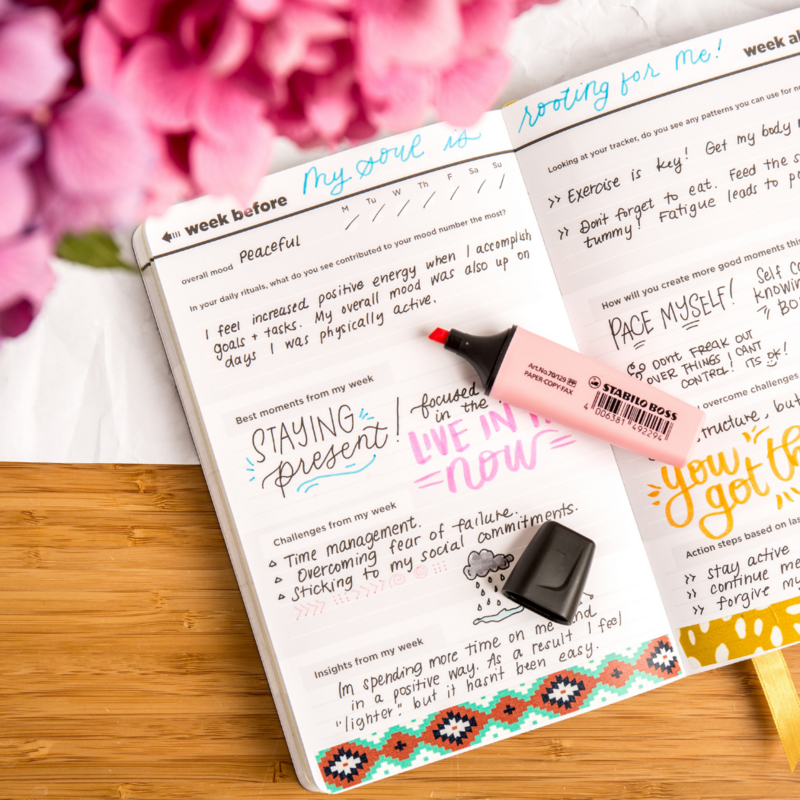 My soul is rooting for me!
week before
M Tu W Th F Sa Su
overall mood Peaceful
In your daily rituals, what do you see contributed to your mood number the most?
I feel increased positive energy when I accomplish
goals + tasks. My overall mood was also up on
days I was physically active.
Best moments from my week
STAYING
present!
focused
in the
LIVE IN
now
Challenges from my week
Time management.
Overcoming fear of failure.
Sticking to my social commitments.
Insights from my week
Im spending more time on me and
in a positive way. As a result I feel
"lighter." but it hasnt been easy.
week
Looking at your tracker, do you see any patterns you can use for
>> Exercise is key! Get my body
>> Dont forget to eat. Feed the
tummy! Fatigue leads to
How will you create more good moments
PACE MYSELF!
Self
DONT FREAK OUT
OVER THINGS I CANT
CONTROL! ITS OK!
overcome challenges
structure, but
you
got
Action steps based on
>> stay active
>> continue
>> forgive
Art.No.70/129
PAPER·COPY·FAX
STABILO BOSS
4 006381 492294